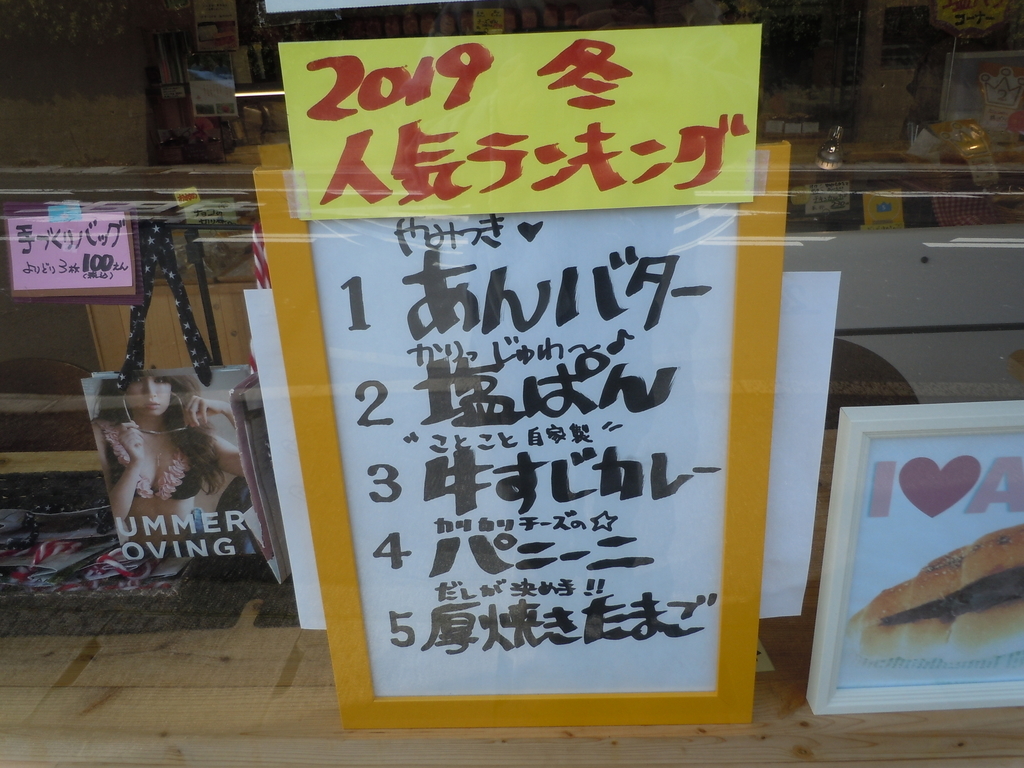 2019 冬
人気ランキング
やみつき♥
1 あんバター
かりっじゅわ〜♪
2 塩ぱん
"ことこと自家製"
3 牛すじカレー
カリカリチーズの☆
4 パニーニ
だしが決め手!!
5 厚焼きたまご
手づくりバッグ
よりどり3枚100えん
(税込)
UMMER
OVING
I♥A
コーナー